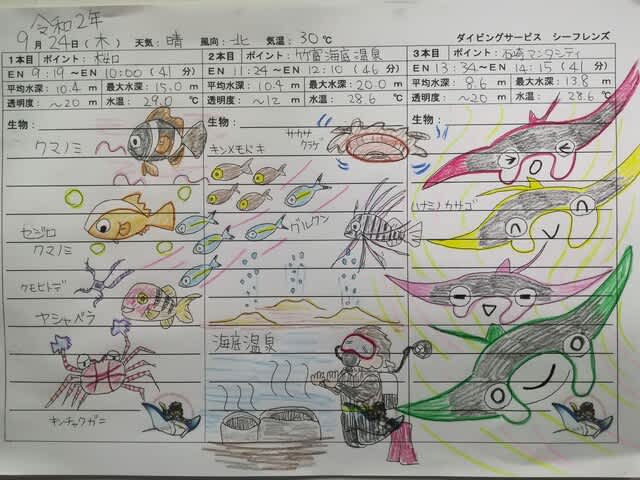 令和2年
9月24日(木) 天気:晴 風向:北 気温:30℃ ダイビングサービス シーフレンズ
1本目 ポイント:桜口
EN 9:19~EN 10:00(41分)
平均水深:10.4m 最大水深:15.0m
透明度:~20m 水温:29.0℃
生物:
クマノミ
セジロ
クマノミ
クモヒトデ
ヤシャベラ
キンチャクガニ
2本目 ポイント:竹富海底温泉
EN 11:24~EN 12:10(46分)
平均水深:10.4m 最大水深:20.0m
透明度:~12m 水温:28.6℃
生物:
サカサ
クラゲ
キンメモドキ
グルクン
海底温泉
3本目 ポイント:石崎マンタシティ
EN 13:34~EN 14:15(41分)
平均水深:8.6m 最大水深:13.8m
透明度:~20m 水温:28.6℃
生物:
ハナミノカサゴ